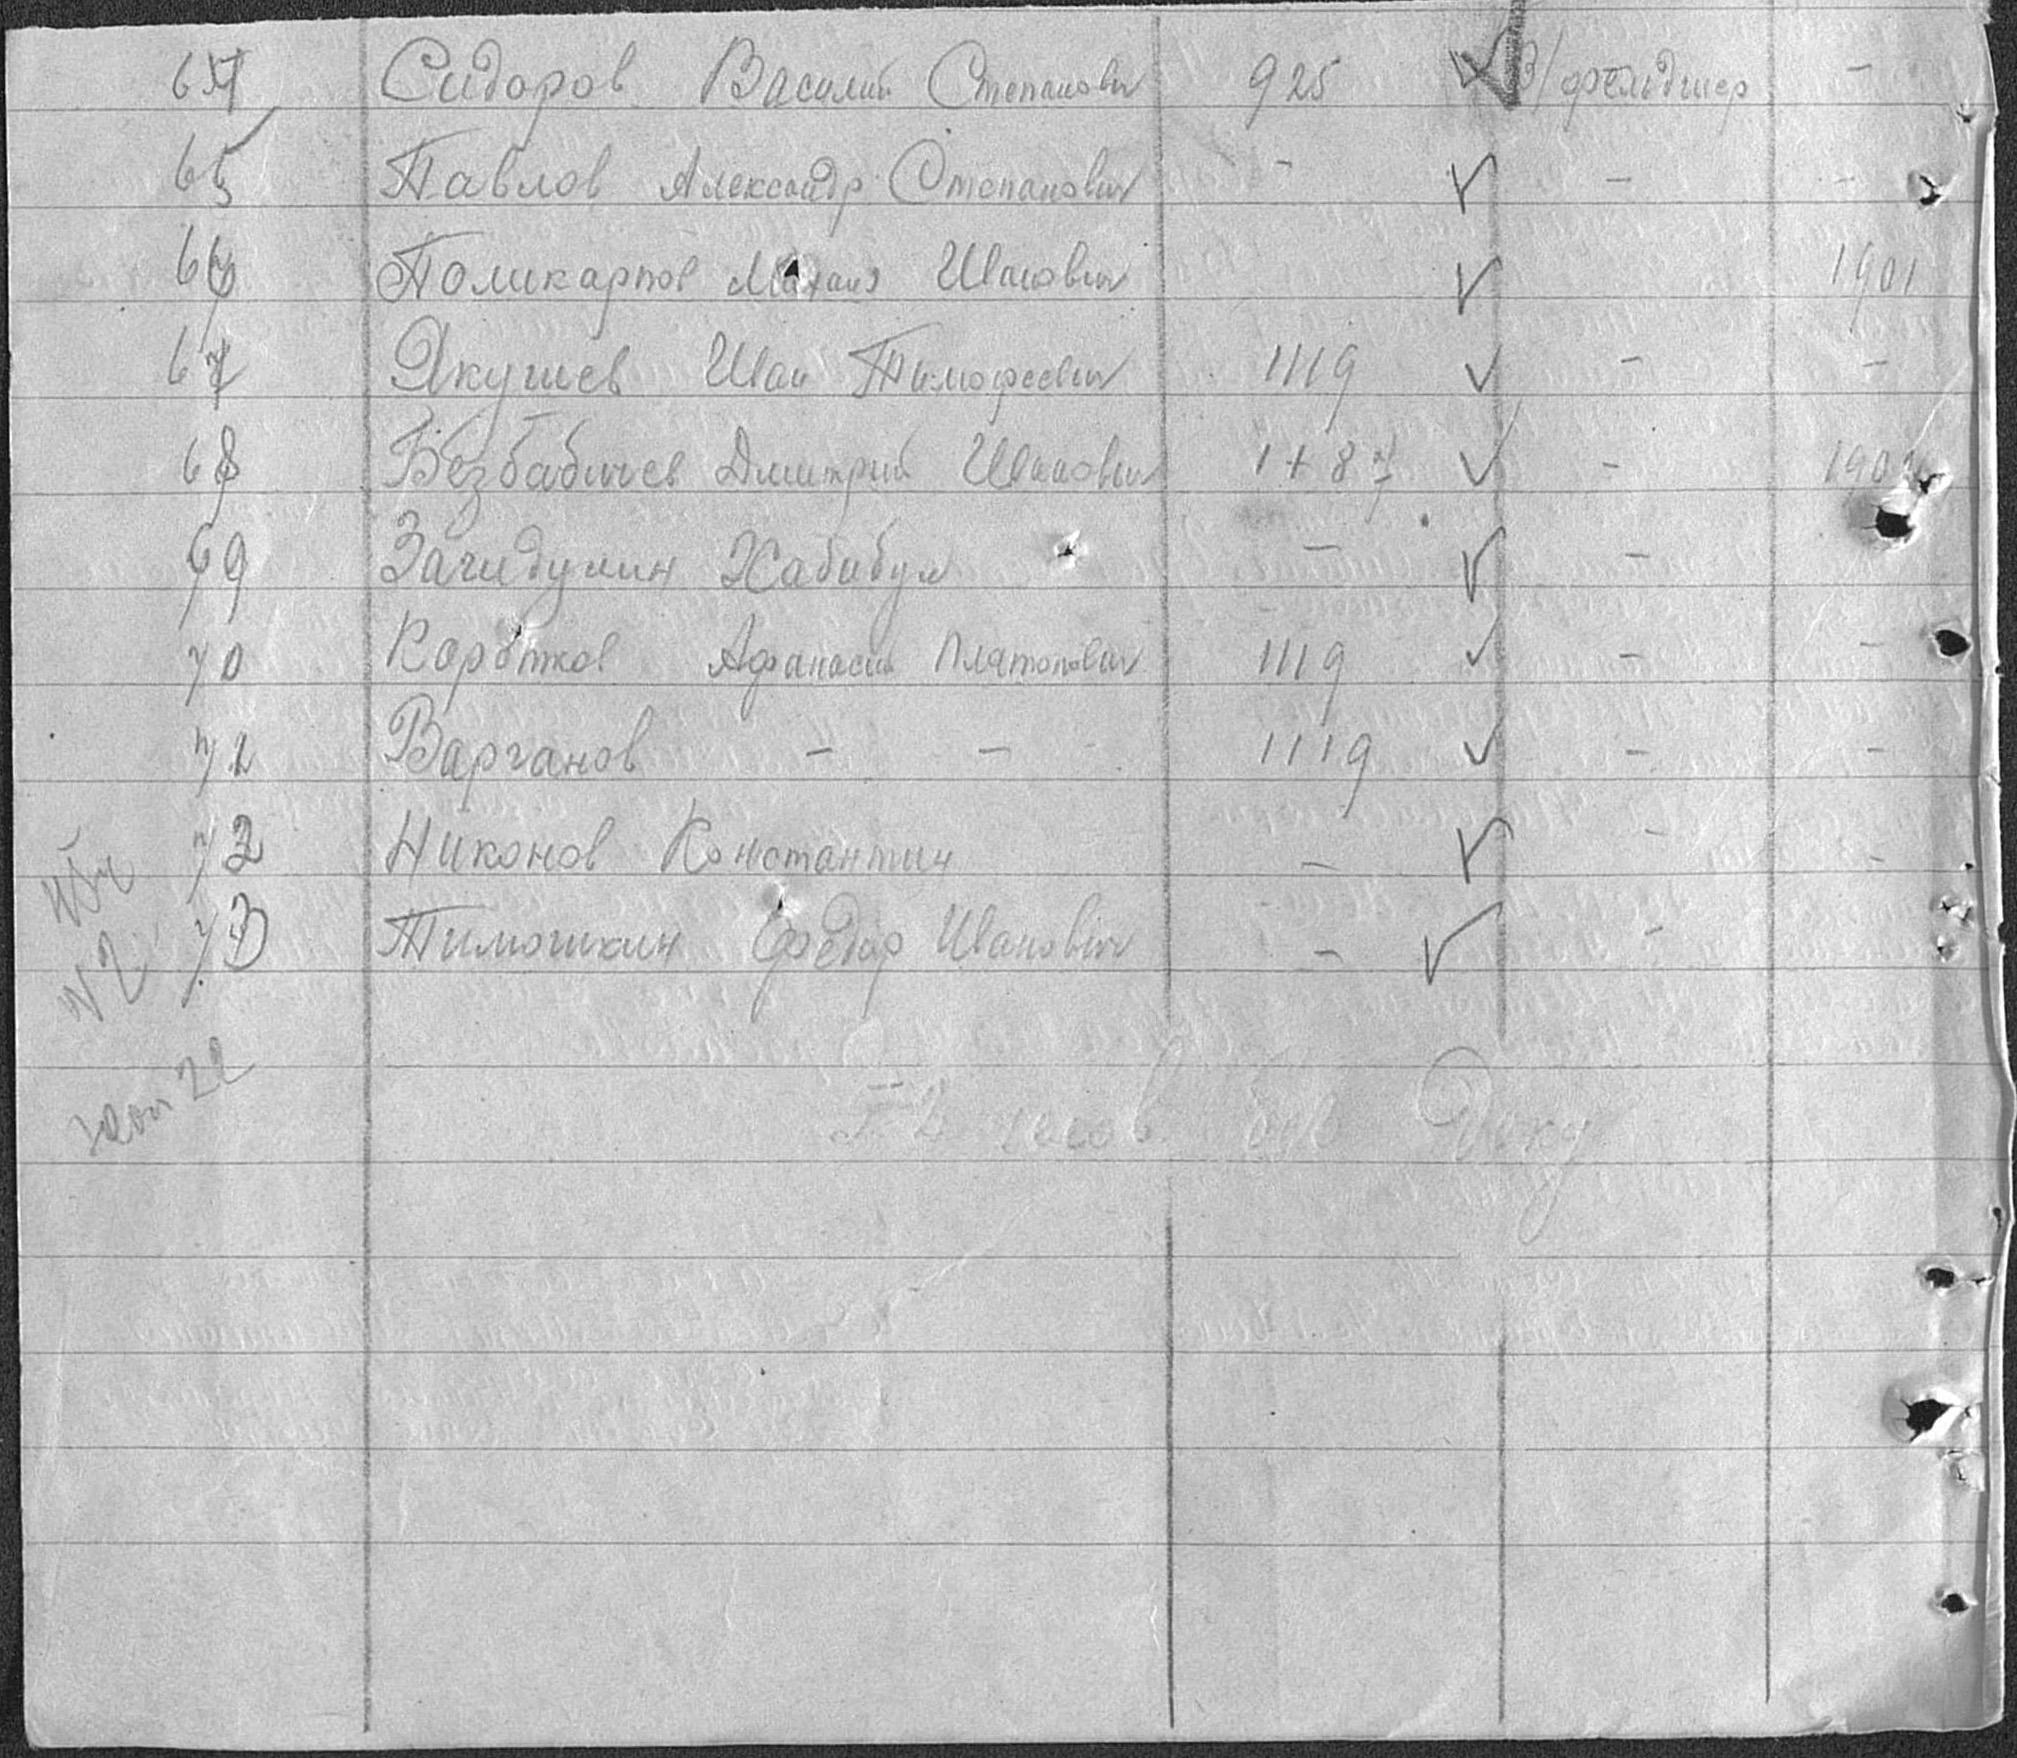 64 Сидоров Василий Степанович 925 В/фельдшер -
65 Павлов Александр Степанович - - -
66 Поликарпов Михаил Иванович 1901
67 Якушев Иван Тимофеевич 1119 - -
68 Безбабичев Дмитрий Иванович -
69 Загидулин Хабибул - -
70 Коротков Афанасий Платонович 1119 - -
71 Варганов - - 1119 - -
72 Никонов Константин - - -
73 Тимошкин Федор Иванович - -
N 2
22